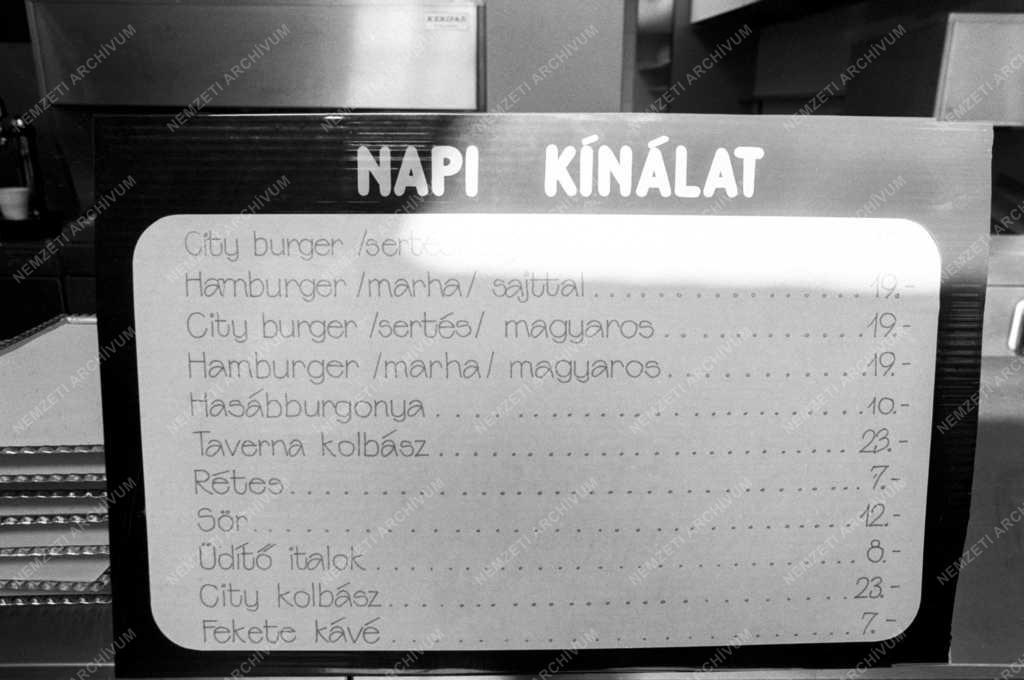 NAPI KÍNÁLAT
City burger /sertés
Hamburger /marha/ sajttal.................... 19.-
City burger /sertés/ magyaros.............. 19.-
Hamburger /marha/ magyaros............. 19.-
Hasábburgonya............................ 10.-
Taverna kolbász........................... 23.-
Rétes...................................... 7.-
Sör........................................ 12.-
Üdítő italok................................ 8.-
City kolbász............................... 23.-
Fekete kávé................................ 7.-
NEMZETI ARCHÍVUM